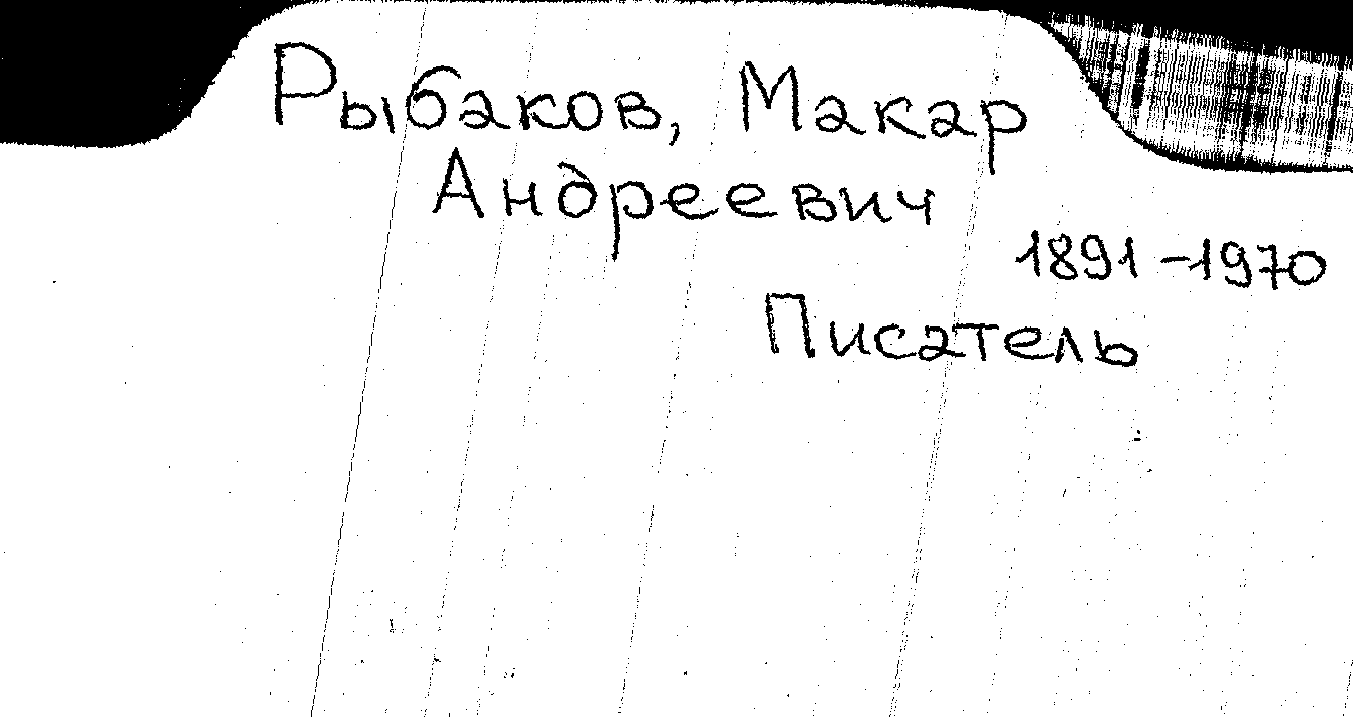 Рыбаков, Макар
Андреевич
1891-1970
Писатель